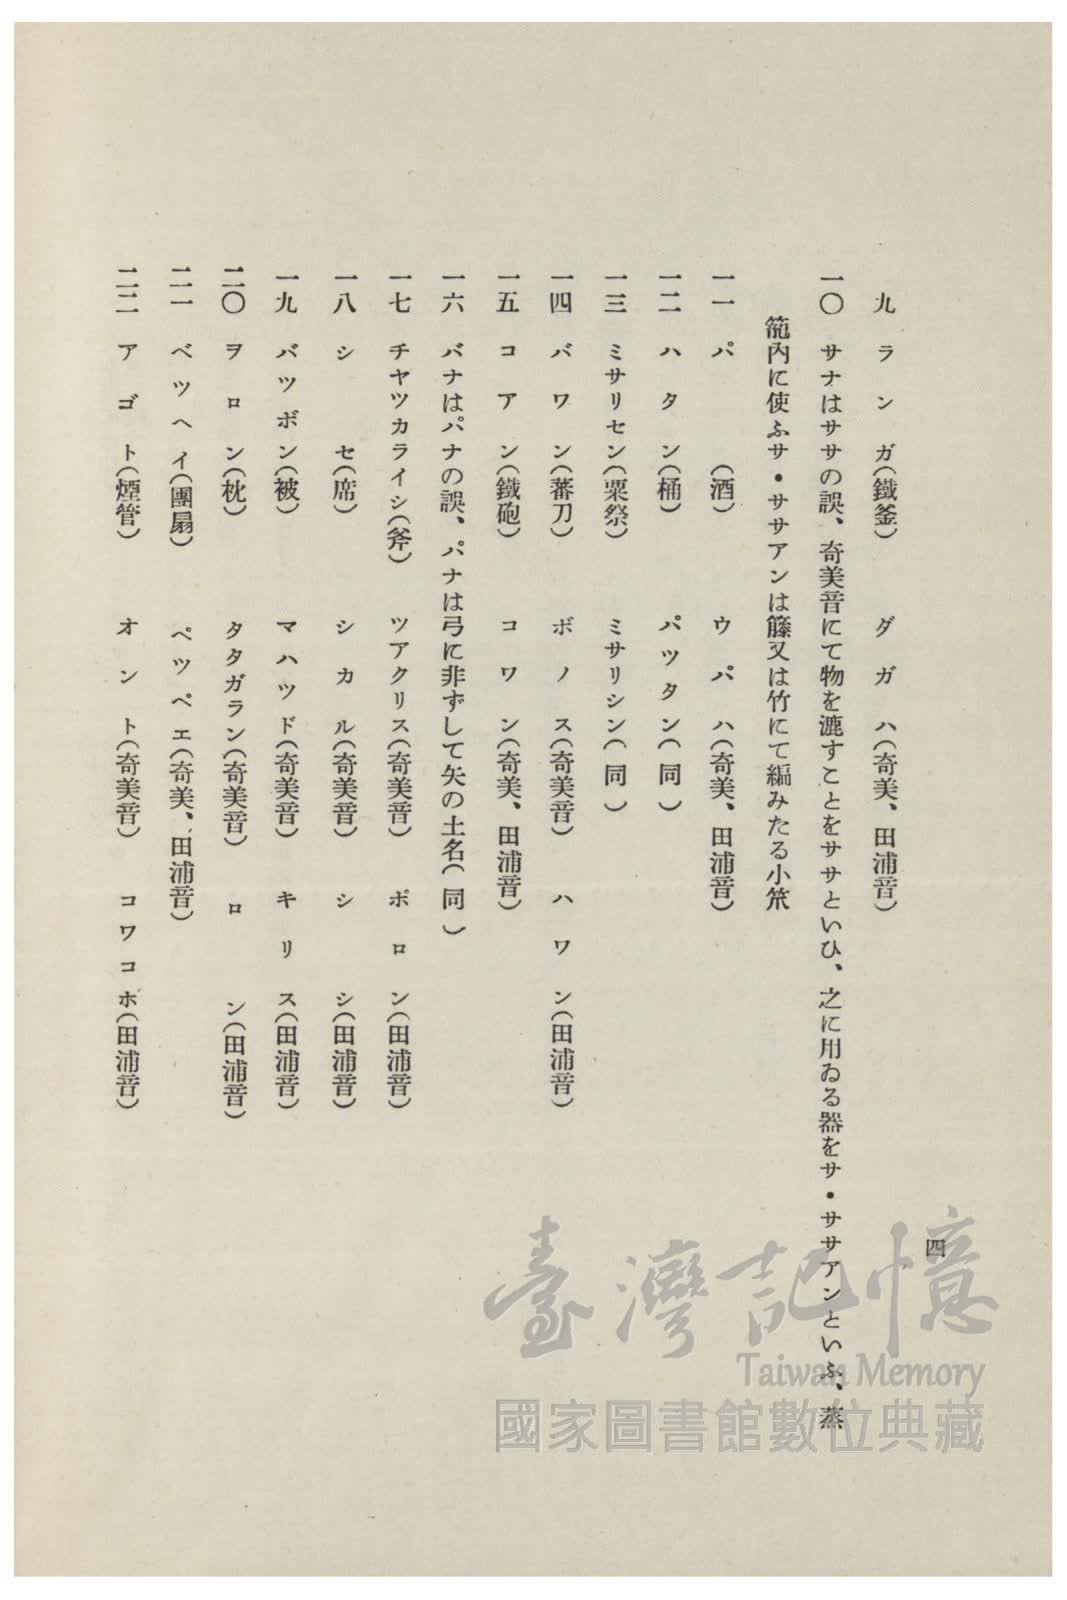 四
九　ランガ（鐵釜）　ダガハ（奇美、田浦音）
一〇　サナはササの誤、奇美音にて物を漉すことをササといひ、之に用ゐる器をサ・ササアンといふ、蒸
籠內に使ふサ・ササアンは籐又は竹にて編みたる小笊
一一　パ（酒）　ウパハ（奇美、田浦音）
一二　ハタン（桶）　パツタン（同）
一三　ミサリセン（粟祭）　ミサリシン（同）
一四　バワン（蕃刀）　ボノス（奇美音）　ハワン（田浦音）
一五　コアン（鐵砲）　コワン（奇美、田浦音）
一六　バナはパナの誤、パナは弓に非ずして矢の土名（同）
一七　チヤツカライシ（斧）　ツアクリス（奇美音）　ポロン（田浦音）
一八　シセ（席）　シカル（奇美音）　シシ（田浦音）
一九　バツボン（被）　マハツド（奇美音）　キリス（田浦音）
二〇　ヲロン（枕）　タタガラン（奇美音）　ロン（田浦音）
二一　ベツヘイ（團扇）　ペツペエ（奇美、田浦音）
二二　アゴト（煙管）　オント（奇美音）　コワコホ（田浦音）
臺灣記憶
Taiwan Memory
國家圖書館數位典藏